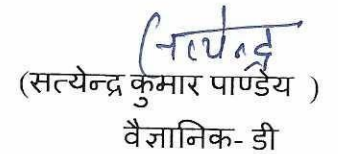 सत्येन्द्र
(सत्येन्द्र कुमार पाण्डेय )
वैज्ञानिक- डी